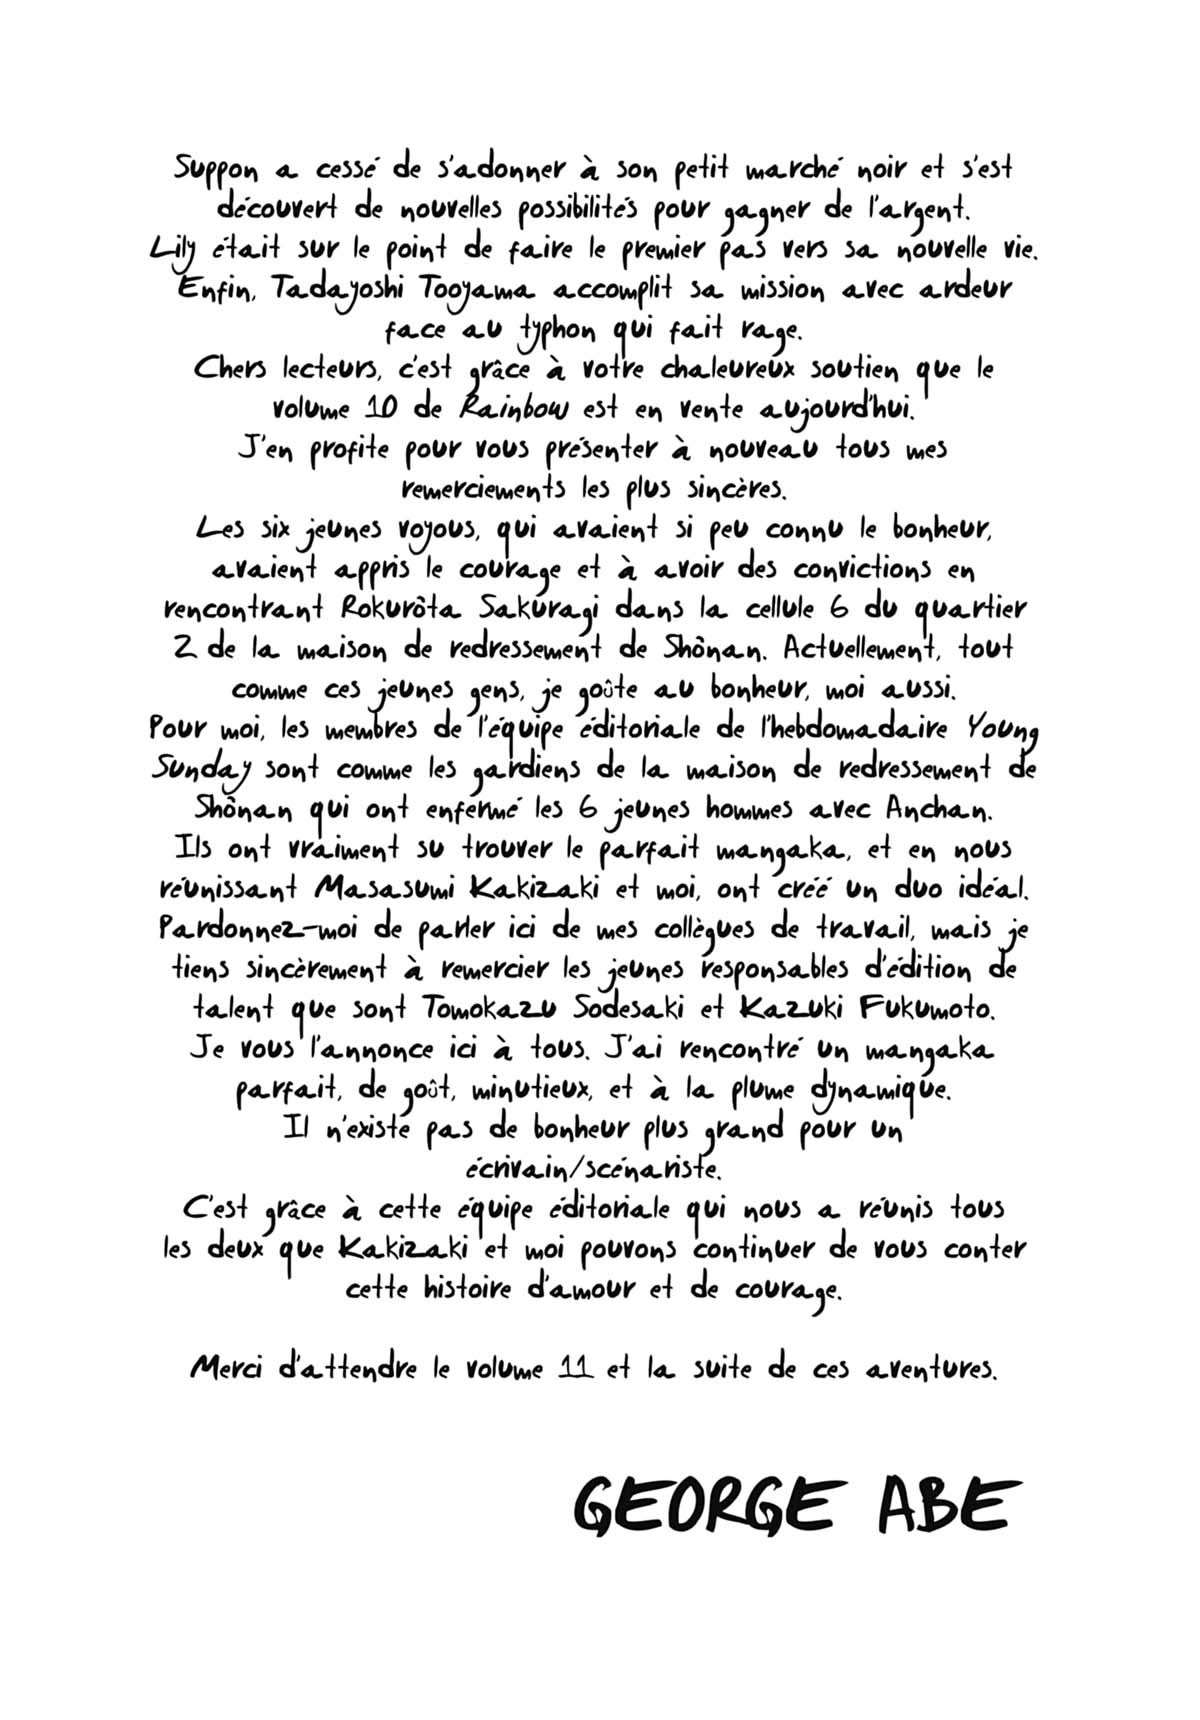 Suppon a cessé de s'adonner à son petit marché noir et s'est
découvert de nouvelles possibilités pour gagner de l'argent.
Lily était sur le point de faire le premier pas vers sa nouvelle vie.
Enfin, Tadayoshi Tooyama accomplit sa mission avec ardeur
face au typhon qui fait rage.
Chers lecteurs, c'est grâce à votre chaleureux soutien que le
volume 10 de Rainbow est en vente aujourd'hui.
J'en profite pour vous présenter à nouveau tous mes
remerciements les plus sincères.
Les six jeunes voyous, qui avaient si peu connu le bonheur,
avaient appris le courage et à avoir des convictions en
rencontrant Rokurôta Sakuragi dans la cellule 6 du quartier
2 de la maison de redressement de Shônan. Actuellement, tout
comme ces jeunes gens, je goûte au bonheur, moi aussi.
Pour moi, les membres de l'équipe éditoriale de l'hebdomadaire Young
Sunday sont comme les gardiens de la maison de redressement de
Shônan qui ont enfermé les 6 jeunes hommes avec Anchan.
Ils ont vraiment su trouver le parfait mangaka, et en nous
réunissant Masasumi Kakizaki et moi, ont créé un duo idéal.
Pardonnez-moi de parler ici de mes collègues de travail, mais je
tiens sincèrement à remercier les jeunes responsables d'édition de
talent que sont Tomokazu Sodesaki et Kazuki Fukumoto.
Je vous l'annonce ici à tous. J'ai rencontré un mangaka
parfait, de goût, minutieux, et à la plume dynamique.
Il n'existe pas de bonheur plus grand pour un
écrivain/scénariste.
C'est grâce à cette équipe éditoriale qui nous a réunis tous
les deux que Kakizaki et moi pouvons continuer de vous conter
cette histoire d'amour et de courage.
Merci d'attendre le volume 11 et la suite de ces aventures.
GEORGE ABE